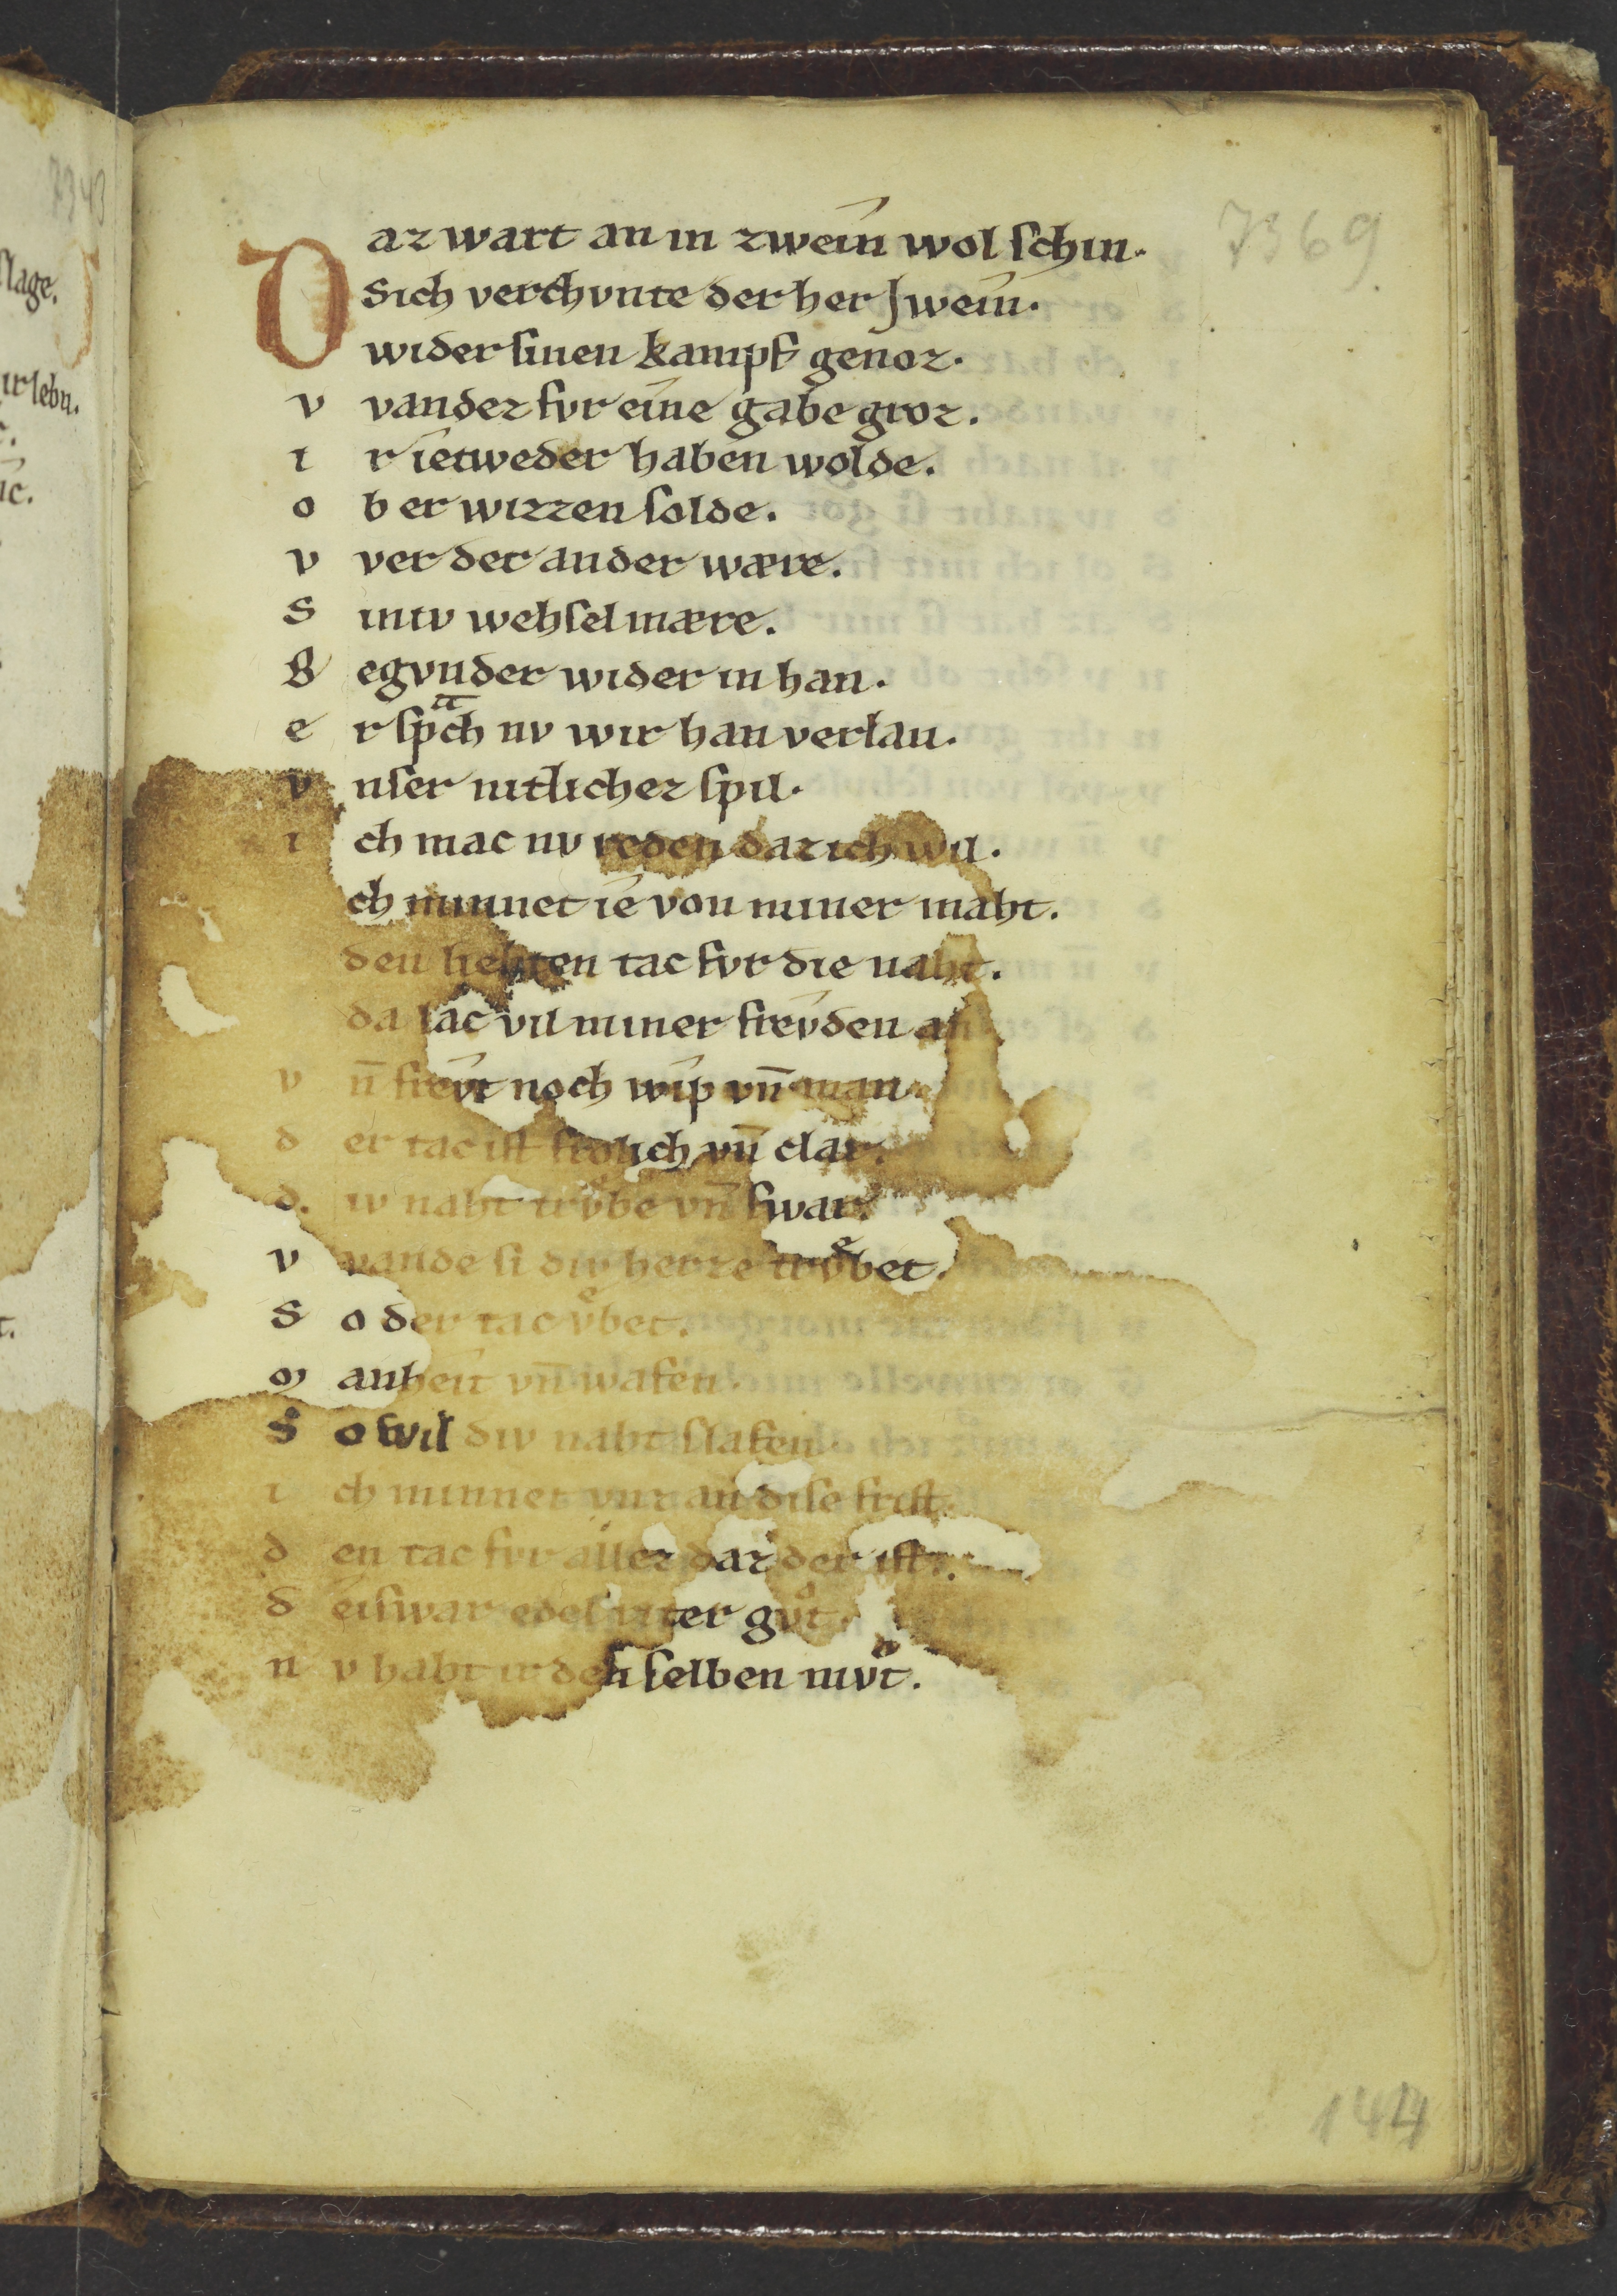 7369
Daz wart an in zwein wol schin.
Sich verchvnte der her Jwein.
wider sinen kampf genoz.
v vander fvr eine gabe groz.
i r ietweder haben wolde.
o b er wizzen solde.
v ver der ander wære.
S iniv wehsel mære.
B egvnder wider in han.
e r spͣch nv wir han verlan.
v nser nitlichez spil.
i ch mac nv reden daz ich wil.
ch minnet ie von miner maht.
den liehten tac fvr die naht.
da lac vil miner frevden an
v n̄ frevt noch wip vn̄ man.
d er tac ist frolich vn̄ clar.
d. iv naht trvͤbe vn̄ swar.
v vande si div herze trvͤbet.
S o der tac vͤbet.
m anheit vn̄ wafen.
S o wil div naht slafen.
i ch minnet vnz an dise frist.
d en tac fvr allez daz der ist.
d eiswar edel riter gvͦt.
n v habt ir den selben mvͦt.
144
7343
slage.
ir lebn.